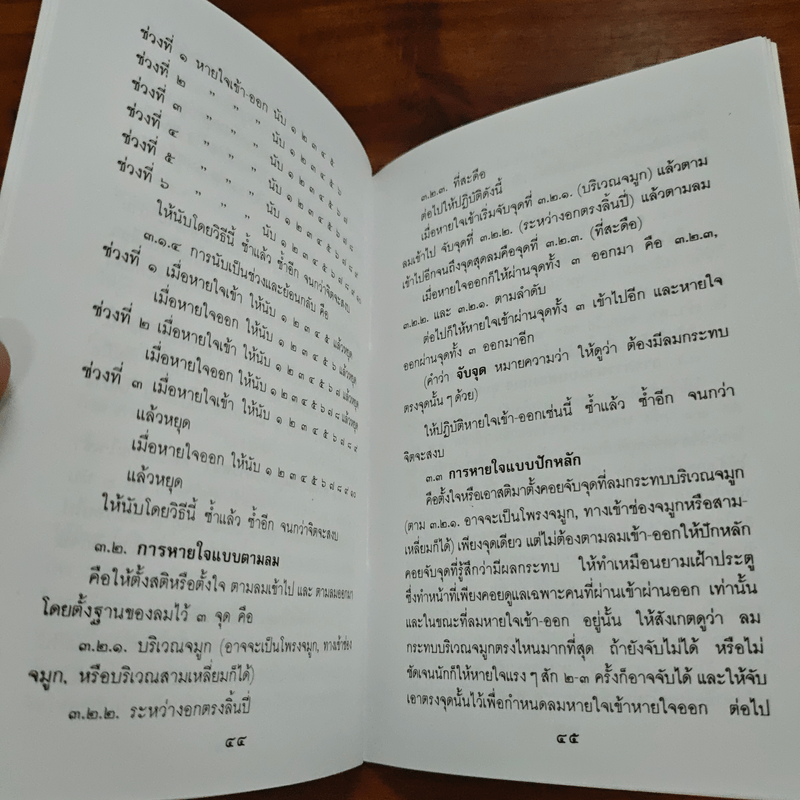 ช่วงที่ ๑ หายใจเข้า-ออก นับ ๑ ๒ ๓ ๔ ๕
ช่วงที่ ๒ " " " นับ ๑ ๒ ๓ ๔ ๕ ๖
ช่วงที่ ๓ " " " นับ ๑ ๒ ๓ ๔ ๕ ๖ ๗
ช่วงที่ ๔ " " " นับ ๑ ๒ ๓ ๔ ๕ ๖ ๗ ๘
ช่วงที่ ๕ " " " นับ ๑ ๒ ๓ ๔ ๕ ๖ ๗ ๘ ๙
ช่วงที่ ๖ " " " นับ ๑ ๒ ๓ ๔ ๕ ๖ ๗ ๘ ๙ ๑๐
ให้นับโดยวิธีนี้ ซ้ำแล้ว ซ้ำอีก จนกว่าจิตจะสงบ
๓.๑.๔ การนับเป็นช่วงและย้อนกลับ คือ
ช่วงที่ ๑ เมื่อหายใจเข้า ให้นับ ๑ ๒ ๓ ๔ ๕ แล้วหยุด
เมื่อหายใจออก ให้นับ ๑ ๒ ๓ ๔ ๕ ๖ แล้วหยุด
ช่วงที่ ๒ เมื่อหายใจเข้า ให้นับ ๑ ๒ ๓ ๔ ๕ ๖ ๗ แล้วหยุด
เมื่อหายใจออก ให้นับ ๑ ๒ ๓ ๔ ๕ ๖ ๗ ๘ แล้วหยุด
ช่วงที่ ๓ เมื่อหายใจเข้า ให้นับ ๑ ๒ ๓ ๔ ๕ ๖ ๗ ๘ ๙
แล้วหยุด
เมื่อหายใจออก ให้นับ ๑ ๒ ๓ ๔ ๕ ๖ ๗ ๘ ๙ ๑๐
แล้วหยุด
ให้นับโดยวิธีนี้ ซ้ำแล้ว ซ้ำอีก จนกว่าจิตจะสงบ
๓.๒. การหายใจแบบตามลม
คือให้ตั้งสติหรือตั้งใจ ตามลมเข้าไป และ ตามลมออกมา
โดยตั้งฐานของลมไว้ ๓ จุด คือ
๓.๒.๑. บริเวณจมูก (อาจจะเป็นโพรงจมูก, ทางเข้าช่อง
จมูก, หรือบริเวณสามเหลี่ยมก็ได้)
๓.๒.๒. ระหว่างอกตรงลิ้นปี่
๔๔
๓.๒.๓. ที่สะดือ
ต่อไปให้ปฏิบัติดังนี้
เมื่อหายใจเข้าเริ่มจับจุดที่ ๓.๒.๑. (บริเวณจมูก) แล้วตาม
ลมเข้าไป จับจุดที่ ๓.๒.๒. (ระหว่างอกตรงลิ้นปี่) แล้วตามลม
เข้าไปอีกจนถึงจุดสุดลมคือจุดที่ ๓.๒.๓. (ที่สะดือ)
เมื่อหายใจออกก็ให้ผ่านจุดทั้ง ๓ ออกมา คือ ๓.๒.๓,
๓.๒.๒. และ ๓.๒.๑. ตามลำดับ
ต่อไปก็ให้หายใจเข้าผ่านจุดทั้ง ๓ เข้าไปอีก และหายใจ
ออกผ่านจุดทั้ง ๓ ออกมาอีก
(คำว่า จับจุด หมายความว่า ให้ดูว่า ต้องมีลมกระทบ
ตรงจุดนั้น ๆ ด้วย)
ให้ปฏิบัติหายใจเข้า-ออกเช่นนี้ ซ้ำแล้ว ซ้ำอีก จนกว่า
จิตจะสงบ
๓.๓ การหายใจแบบปักหลัก
คือตั้งใจหรือเอาสติมาตั้งคอยจับจุดที่ลมกระทบบริเวณจมูก
(ตาม ๓.๒.๑. อาจจะเป็นโพรงจมูก, ทางเข้าช่องจมูกหรือสาม-
เหลี่ยมก็ได้) เพียงจุดเดียว แต่ไม่ต้องตามลมเข้า-ออกให้ปักหลัก
คอยจับจุดที่รู้สึกว่ามีผลกระทบ ให้ทำเหมือนยามเฝ้าประตู
ซึ่งทำหน้าที่เพียงคอยดูแลเฉพาะคนที่ผ่านเข้าผ่านออก เท่านั้น
และในขณะที่ลมหายใจเข้า-ออก อยู่นั้น ให้สังเกตดูว่า ลม
กระทบบริเวณจมูกตรงไหนมากที่สุด ถ้ายังจับไม่ได้ หรือไม่
ชัดเจนนักก็ให้หายใจแรง ๆ สัก ๒-๓ ครั้งก็อาจจับได้ และให้จับ
เอาตรงจุดนั้นไว้เพื่อกำหนดลมหายใจเข้าหายใจออก ต่อไป
๔๕